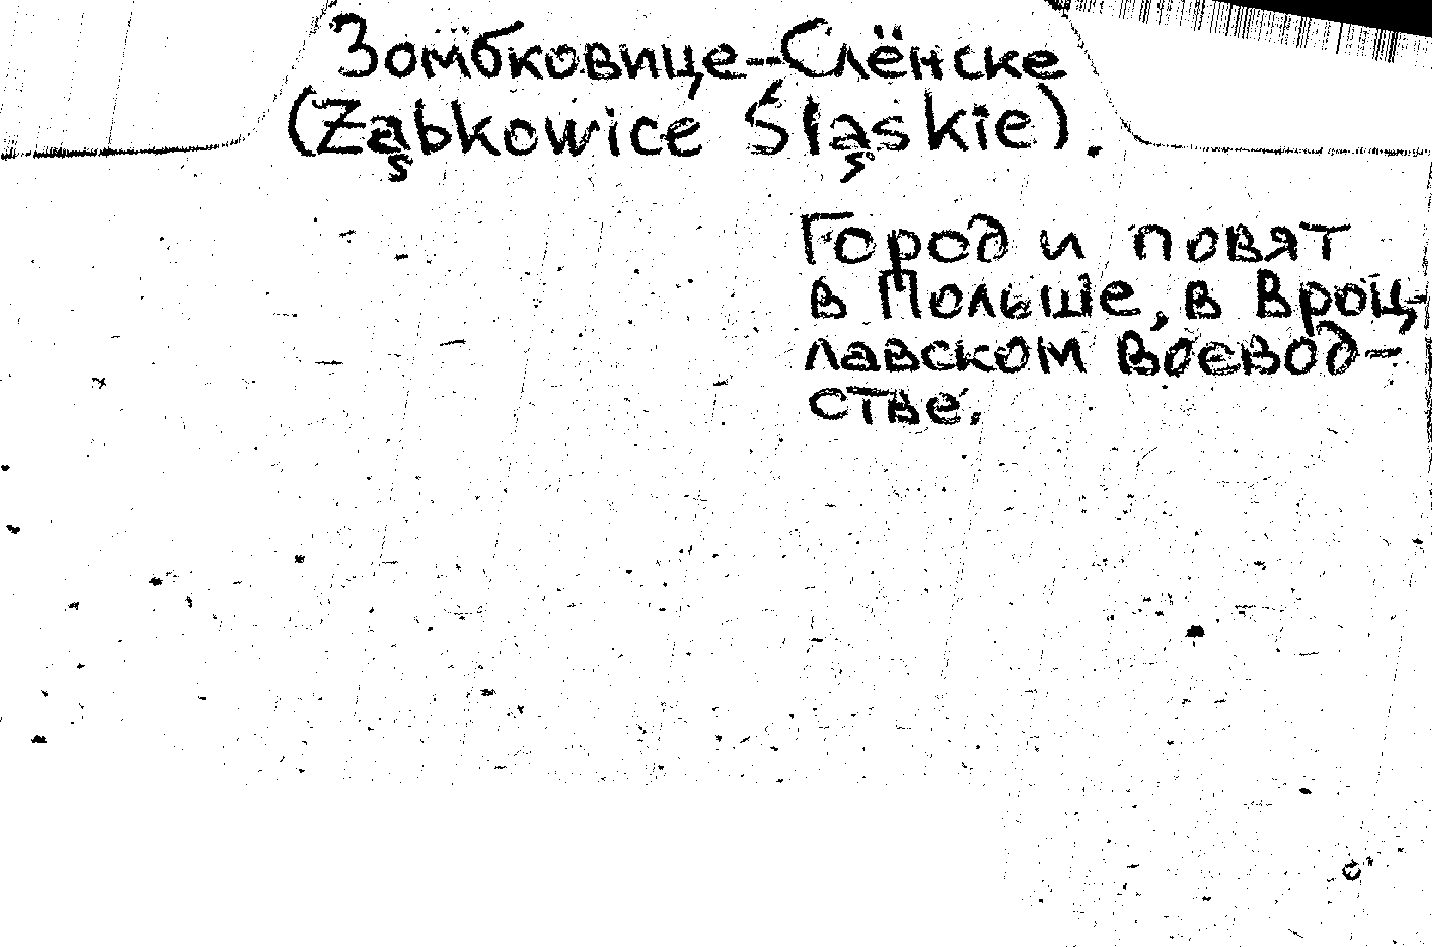 Зомбковице-Слёнске
(Ząbkowice Śląskie).
Город и повят
в Польше, в Вроц-
лавском воевод-
стве.